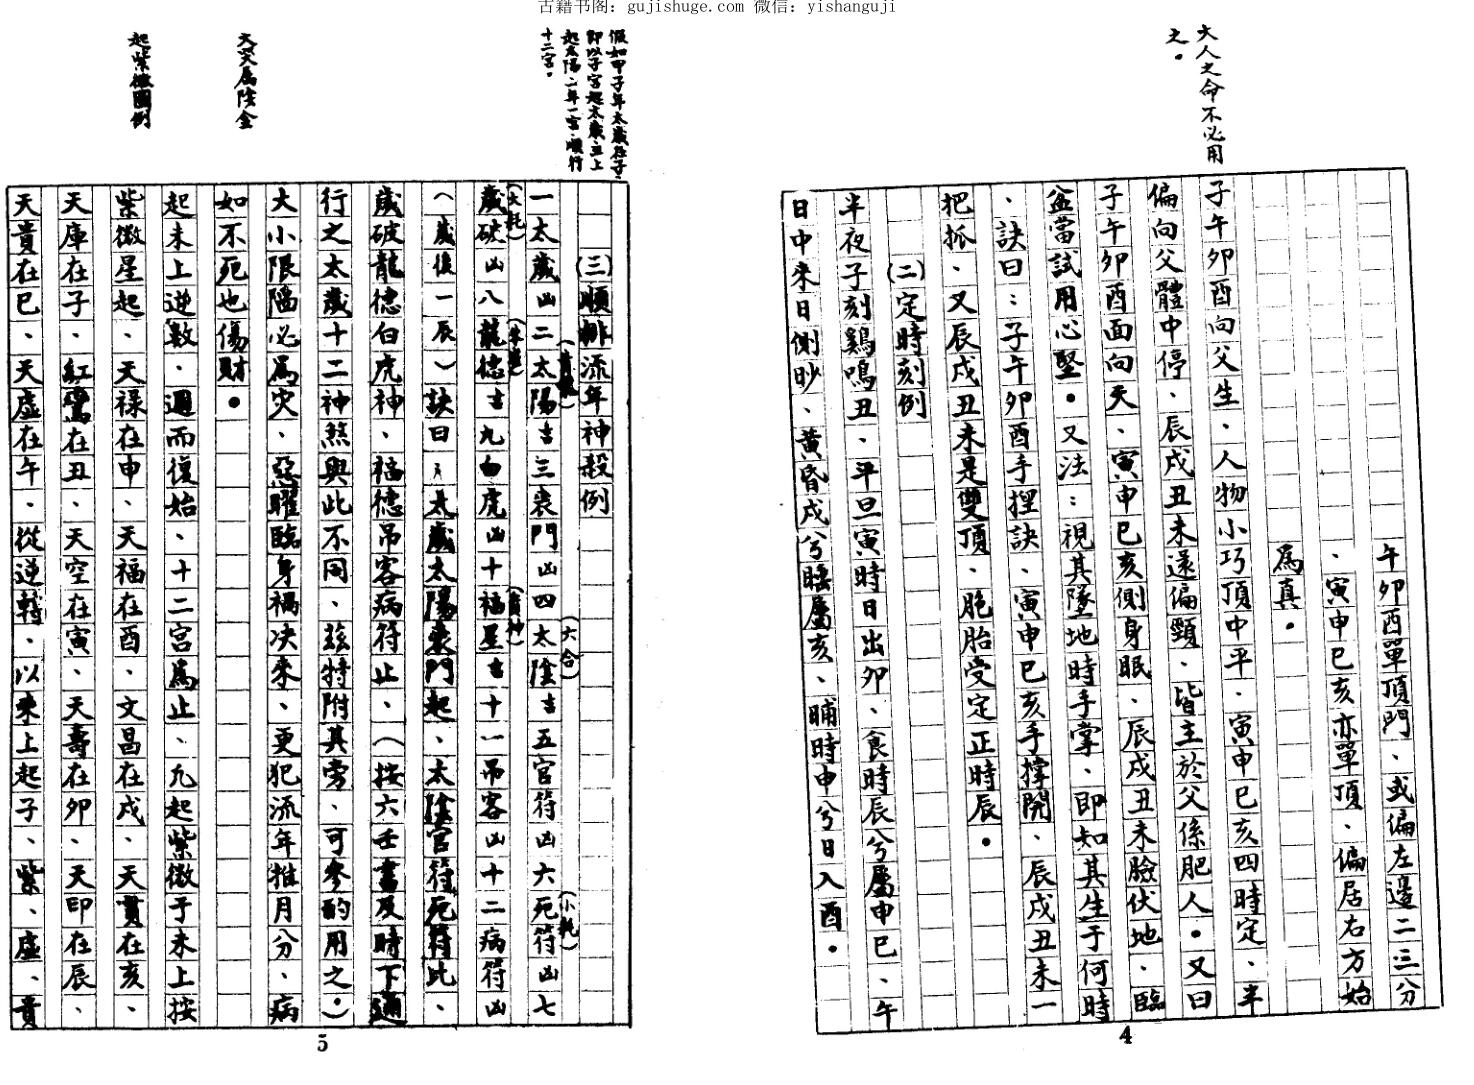 古籍书阁：gujishuge.com 微信：yishanguji
大人之命不必用
之。
午卯酉單頂門、或偏左邊二三分
、寅申巳亥亦單頂、偏居右方始
為真。
子午卯酉向父生、人物小巧頂中平、寅申巳亥四時定、半
偏向父體中停、辰戌丑未還偏頸、皆主於父係肥人。又曰
子午卯酉面向天、寅申巳亥側身眠、辰戌丑未臉伏地、臨
盆當試用心堅。又法：視其墜地時手掌、即知其生于何時
、訣曰：子午卯酉手捏訣、寅申巳亥手撑開、辰戌丑未一
把抓、又辰戌丑未是雙頂、胞胎受定正時辰。
(二)定時刻例
半夜子刻鷄鳴丑、平旦寅時日出卯、食時辰兮屬申巳、午
日中來日側昳、黃昏戌兮睡屬亥、晡時申兮日入酉。
4
假如甲子年太歲在子、
即以子宮起太歲、丑上
起太陽、一年一宮、順行
十二宮。
天哭屬陰金
起紫微圖例
(三)順排流年神殺例
一太歲凶二太陽吉三喪門凶四太陰吉五官符凶六死符凶七
(六合)
(小耗)
歲破凶八龍德吉九白虎凶十福星吉十一吊客凶十二病符凶
(大耗)
(歲後一辰)訣曰：太歲太陽喪門起、太陰官符死符此、
歲破龍德白虎神、福德吊客病符止、(按六壬書及時下通
行之太歲十二神煞與此不同、茲特附其旁、可參酌用之。)
大小限隔必為灾、惡曜臨身禍决來、更犯流年推月分、病
如不死也傷財。
起未上逆數、週而復始、十二宮為止、凡起紫微于未上按
紫微星起、天祿在申、天福在酉、文昌在戌、天貫在亥、
天庫在子、紅鸞在丑、天空在寅、天壽在卯、天印在辰、
天貴在巳、天虛在午、從逆轉、以未上起子、紫、虛、貴
5